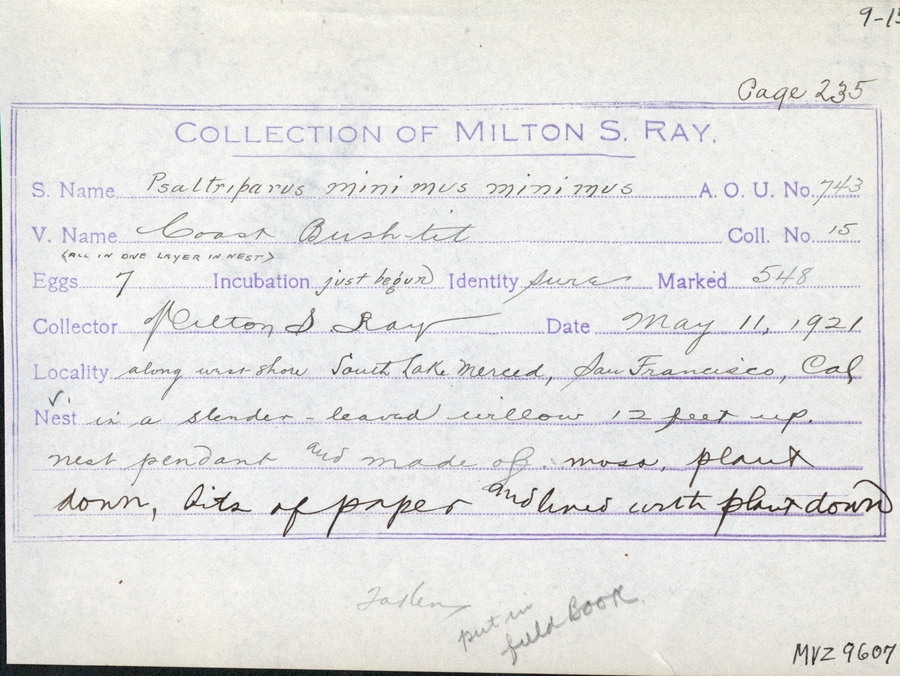 9-15
Page 235
COLLECTION OF MILTON S. RAY.
S. Name Psaltriparus minimus minimus A. O. U. No. 743
V. Name Coast Bush-tit Coll. No. 15
(ALL IN ONE LAYER IN NEST)
Eggs 7 Incubation just begun Identity sure Marked 548
Collector Milton S Ray Date May 11, 1921
Locality along west shore South Lake Merced, San Francisco, Cal
Nest in a slender-leaved willow 12 feet up.
nest pendant and made of moss, plant
down, bits of paper and lined with plant down
Taken
put in
field BOOK.
MVZ 9607